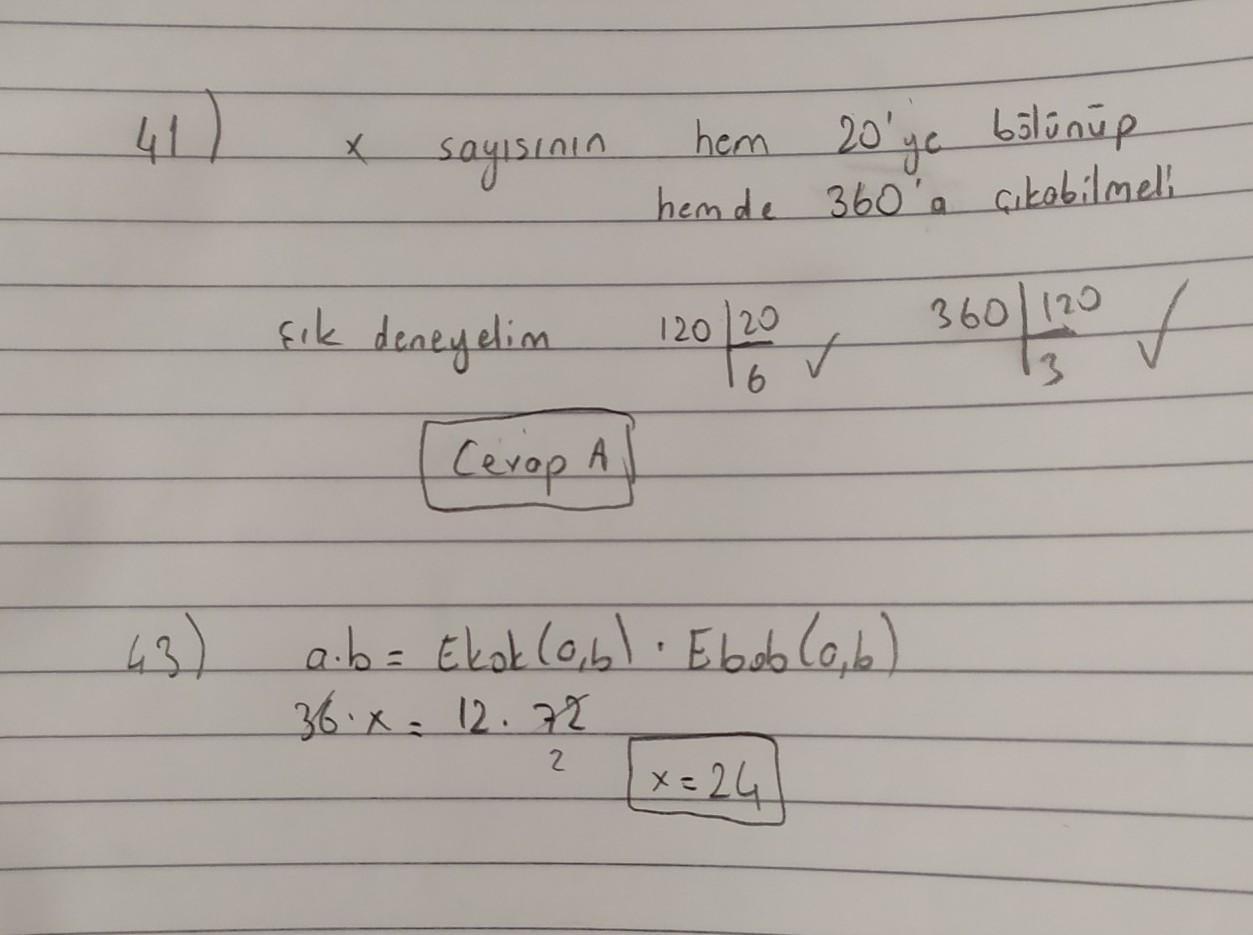 41) x sayısının hem 20'ye bölünüp
hemde 360'a çıkabilmeli
Şık deneyelim 120 | 20 6 ✓ 360 | 120 3 ✓
Cevap A
43) a.b = Ekok(a,b) · Ebob(a,b)
36·x = 12·72
2
x=24